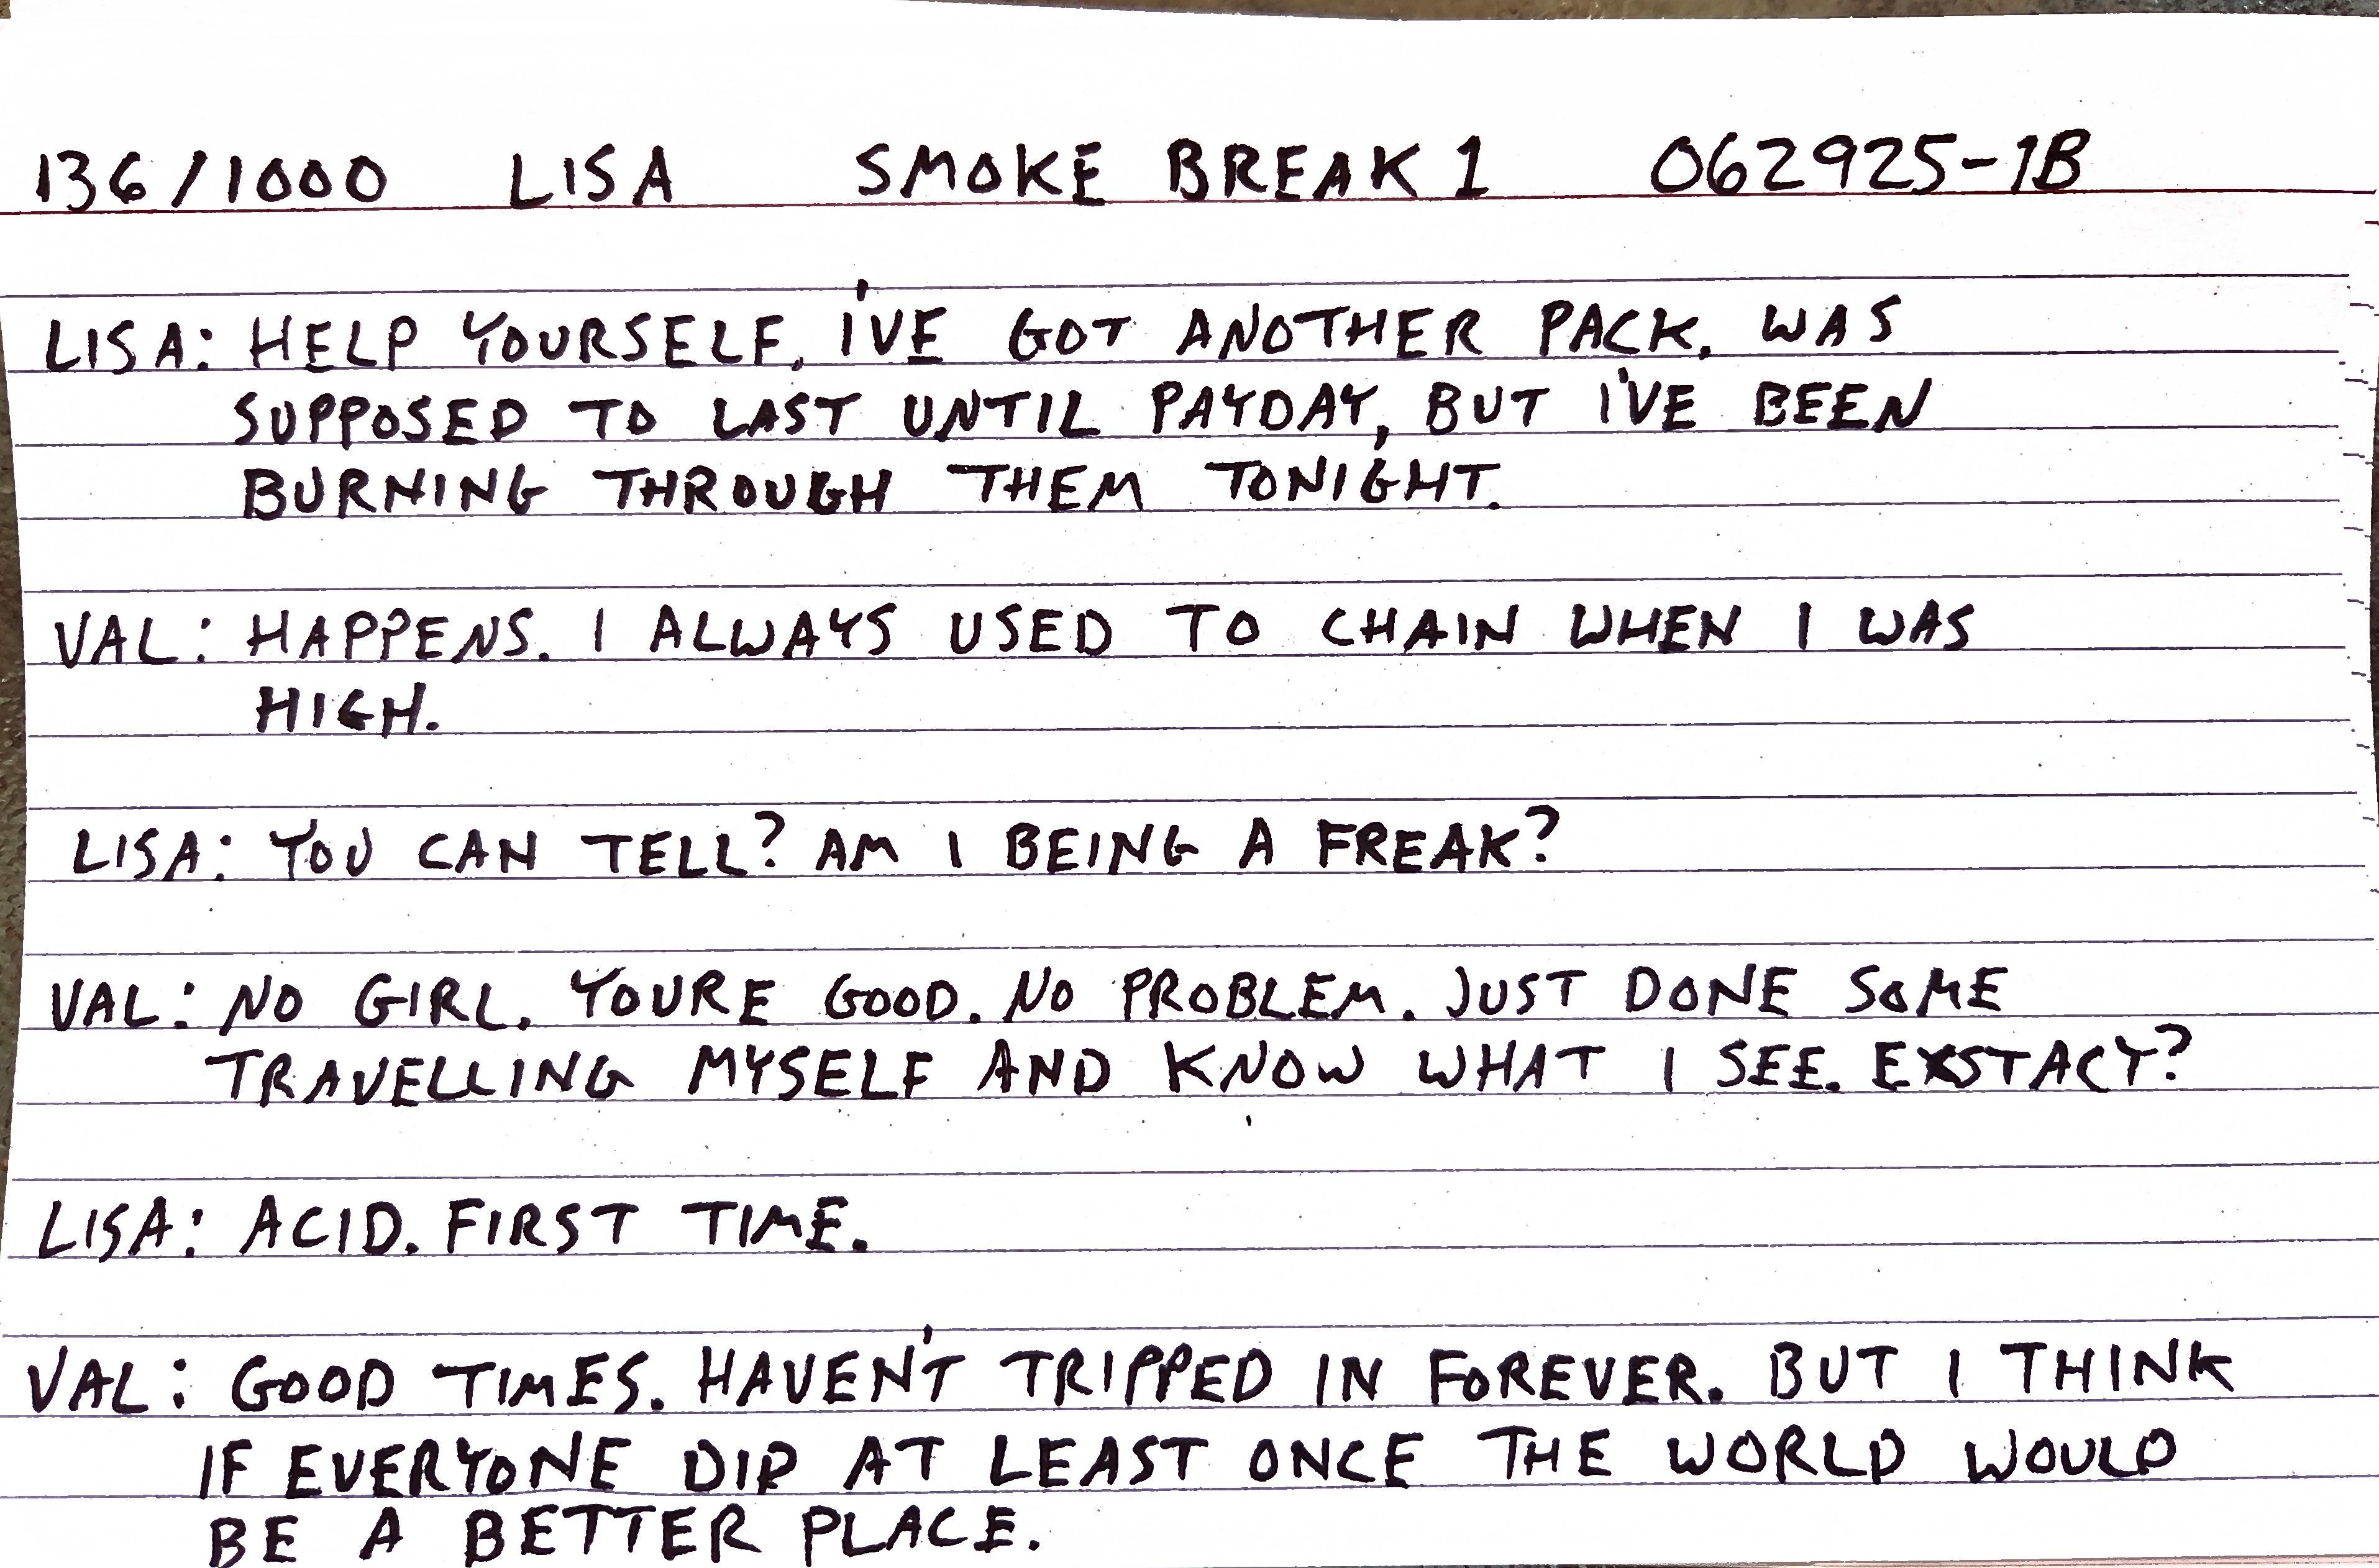 136/1000 LISA SMOKE BREAK 1 062925-1B
LISA: HELP YOURSELF. I'VE GOT ANOTHER PACK. WAS
SUPPOSED TO LAST UNTIL PAYDAY, BUT I'VE BEEN
BURNING THROUGH THEM TONIGHT.
VAL: HAPPENS. I ALWAYS USED TO CHAIN WHEN I WAS
HIGH.
LISA: YOU CAN TELL? AM I BEING A FREAK?
VAL: NO GIRL. YOURE GOOD. NO PROBLEM. JUST DONE SOME
TRAVELLING MYSELF AND KNOW WHAT I SEE. EXSTACY?
LISA: ACID. FIRST TIME.
VAL: GOOD TIMES. HAVEN'T TRIPPED IN FOREVER. BUT I THINK
IF EVERYONE DID AT LEAST ONCE THE WORLD WOULD
BE A BETTER PLACE.